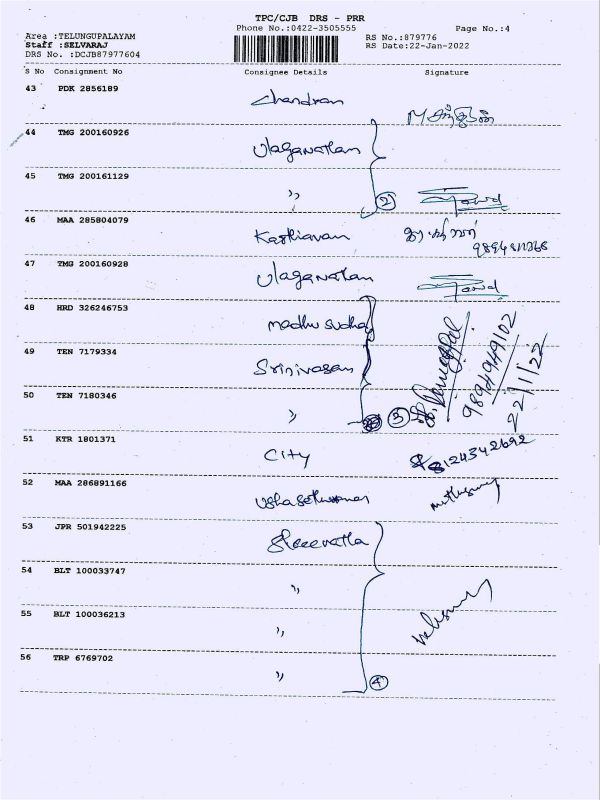 TPC/CJB DRS - PRR
Phone No.:0422-3505555 Page No.:4
Area :TELUNGUPALAYAM RS No.:879776
Staff :SELVARAJ RS Date:22-Jan-2022
DRS No. :DCJB87977604
S No Consignment No Consignee Details Signature
43 PDK 2856189 Chandran
44 TMG 200160926 Ulaganathan
45 TMG 200161129 " 2
46 MAA 285804079 Karthiavan
47 TMG 200160928 Ulaganathan
48 HRD 326246753 madhu sudha
49 TEN 7179334 Srinivasan
50 TEN 7180346 " 3 9894949102 22/1/22
51 KTR 1801371 City 8124342692
52 MAA 286891166
53 JPR 501942225
54 BLT 100033747 "
55 BLT 100036213 "
56 TRP 6769702 " 4